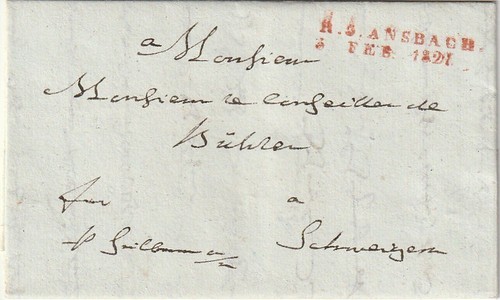 R. 3. ANSBACH.
5 FEB. 1821.
a Monsieur
Monsieur le Conseiller de
Bühler
a
Schweigern